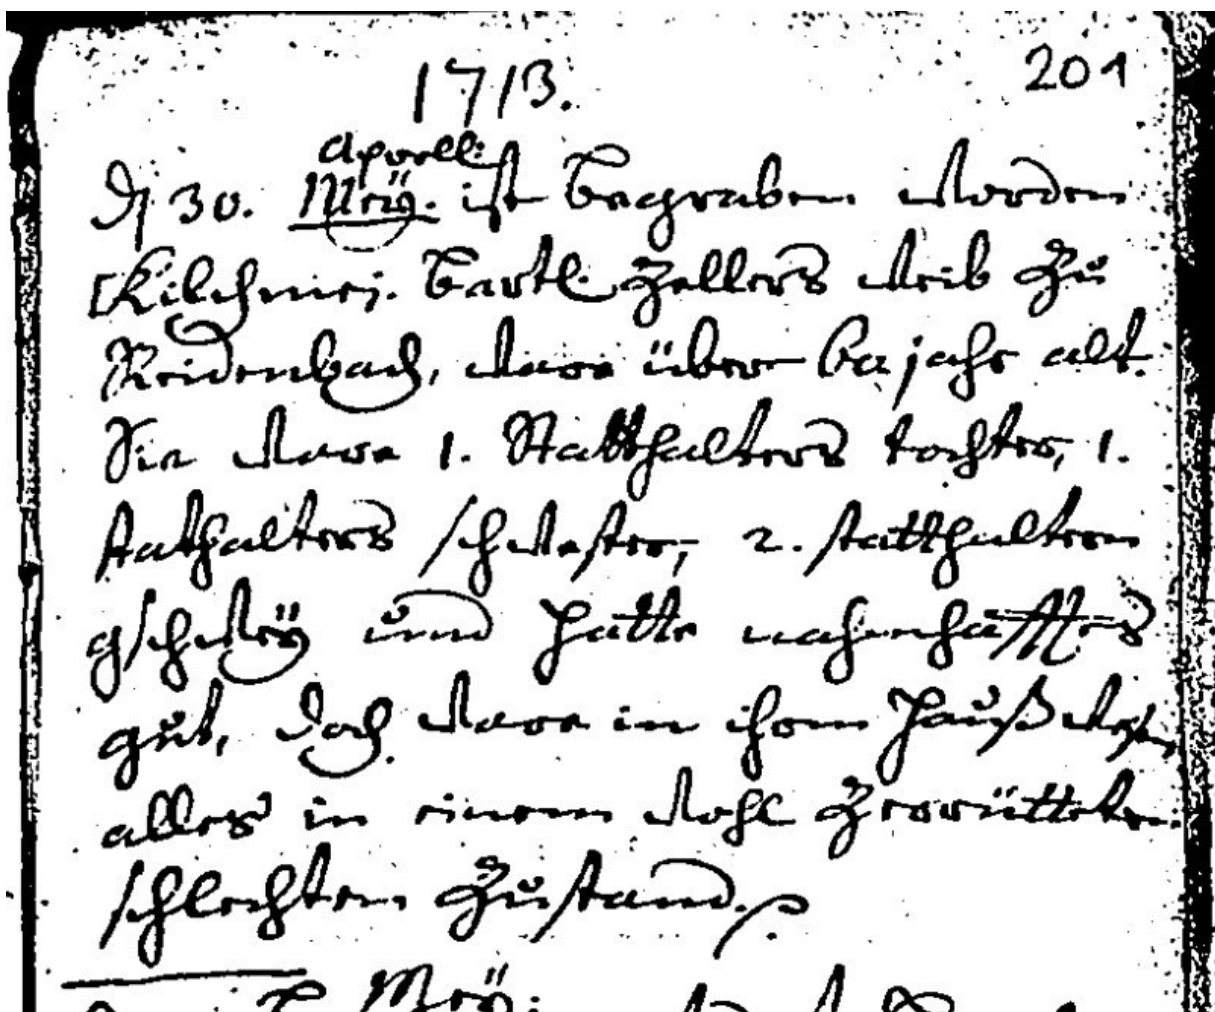 1713.
201
Aprell:
D 30. Meÿ. ist begraben worden
Kilchmej. Bartl. Zellers weib zu
Reidenbach, ware über 60 jahr alt.
Sie ware 1. Statthalters tochter, 1.
stathalters schwester, 2. statthaltern
gschweÿ und hatte nahmhafftes
gut, doch ware in ihrem Hauß
alles in einem wohl zerrütteten
schlechten Zustand.
Meÿ: